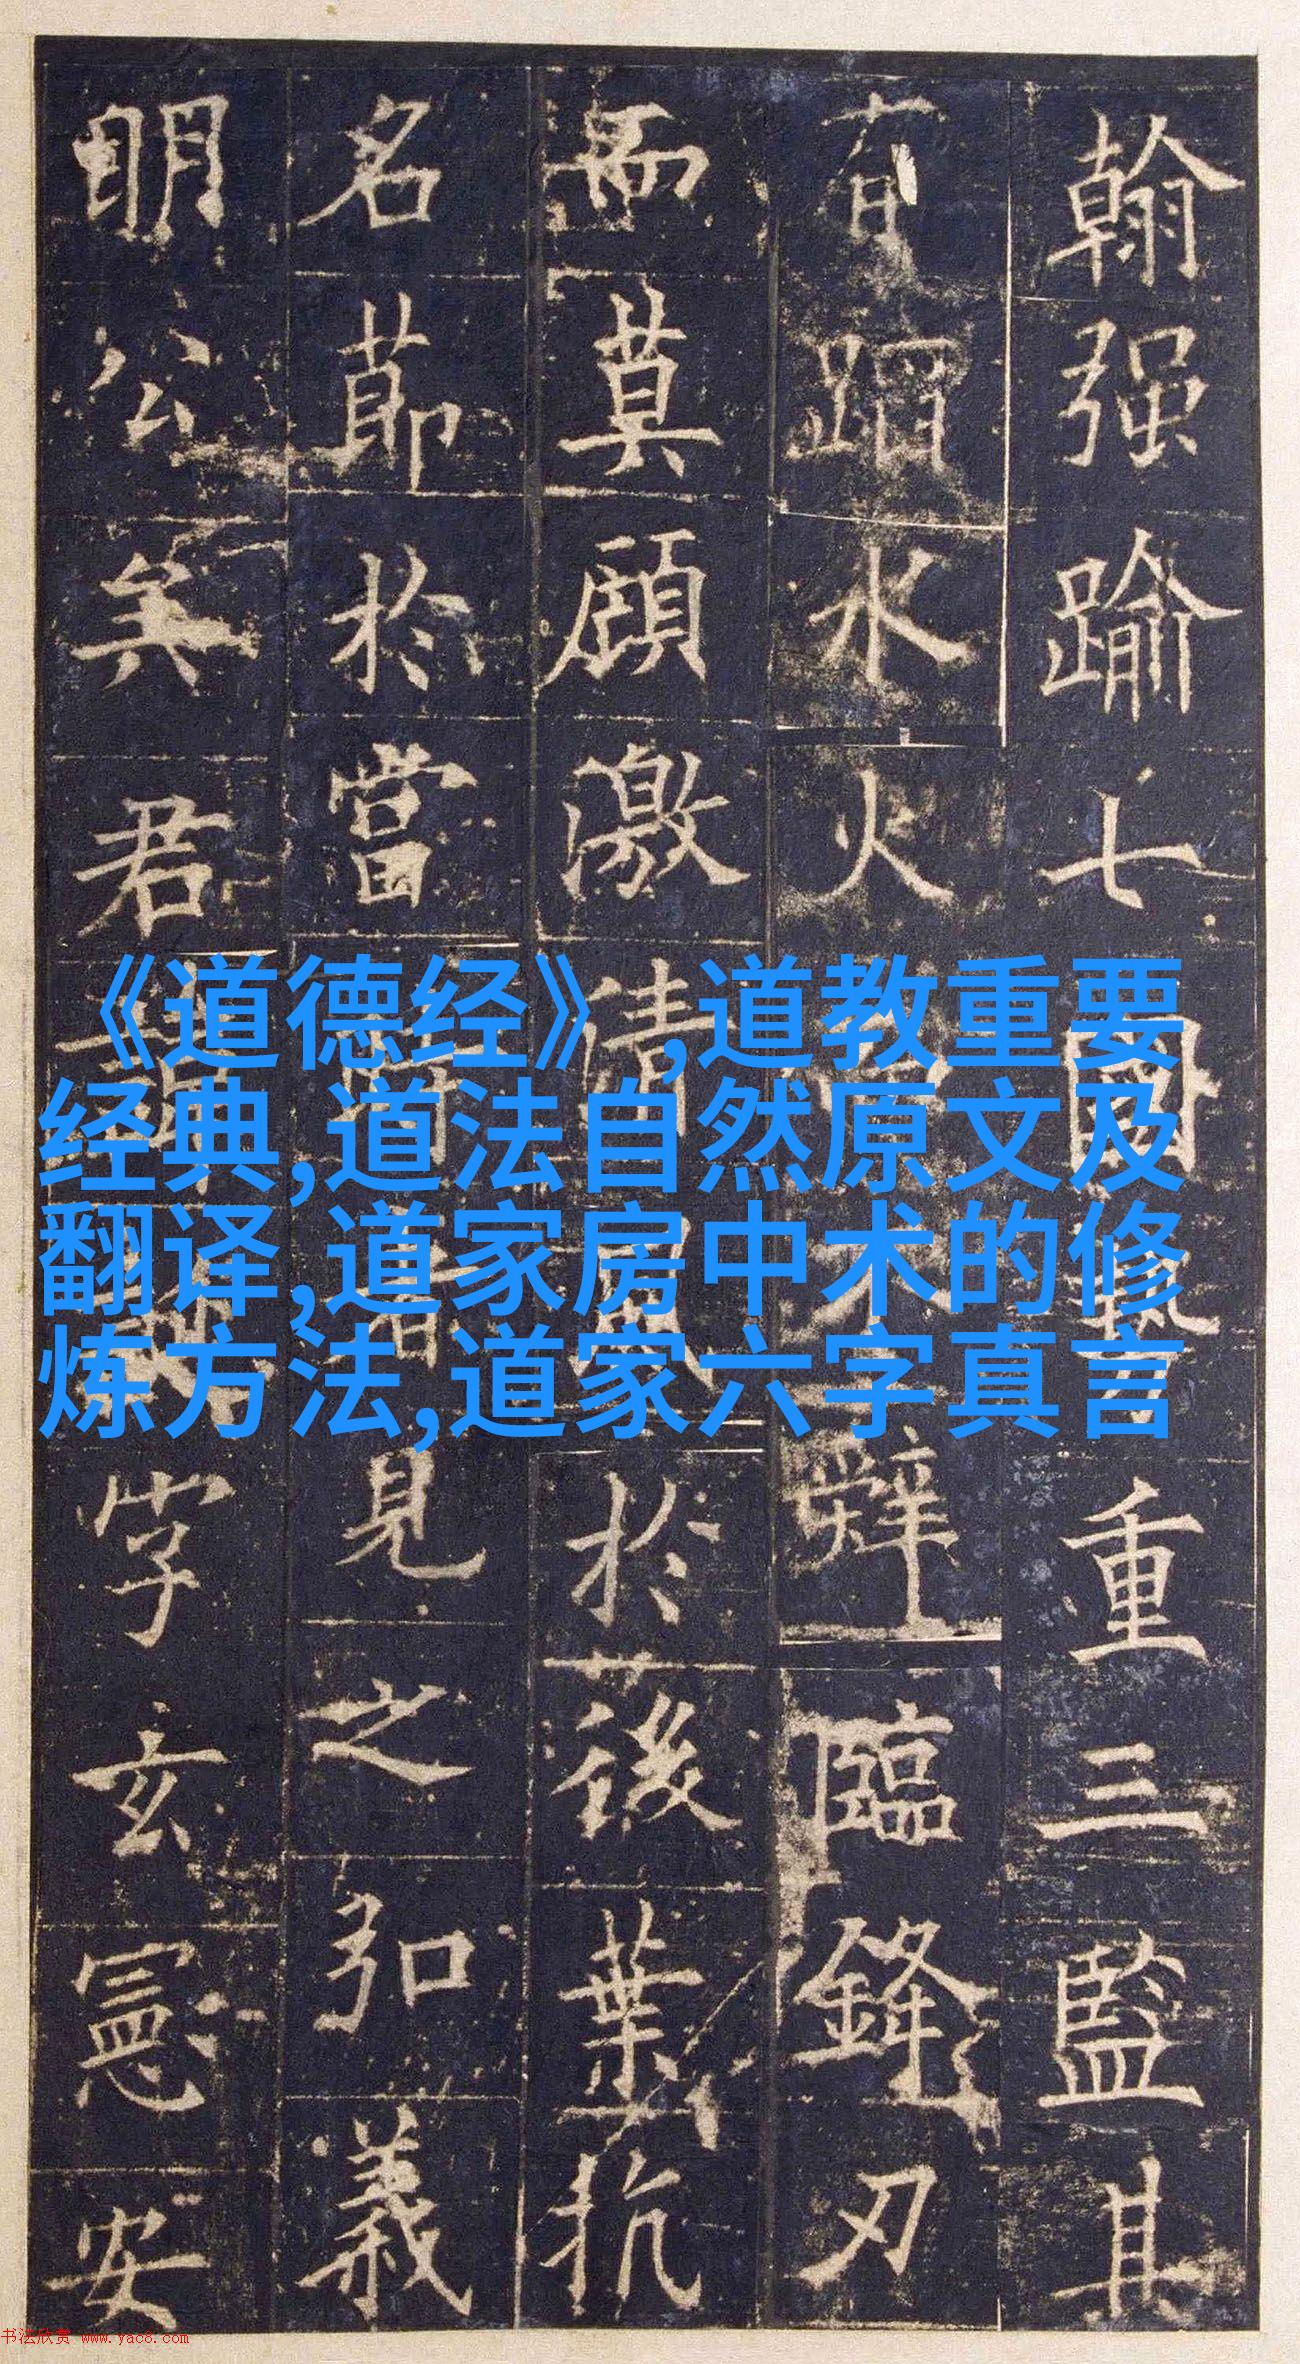 翰强踰七國勢重三監其
有蹈水火而不辭臨鋒刃
而莫顧激清風於後葉抗
名節於當時者見之弘義
明公矣君諱誕字玄憲安
《道德经》,道教重要
经典,道法自然原文及
翻译,道家房中术的修
炼方法,道家六字真言
书法欣赏 www.yac8.com